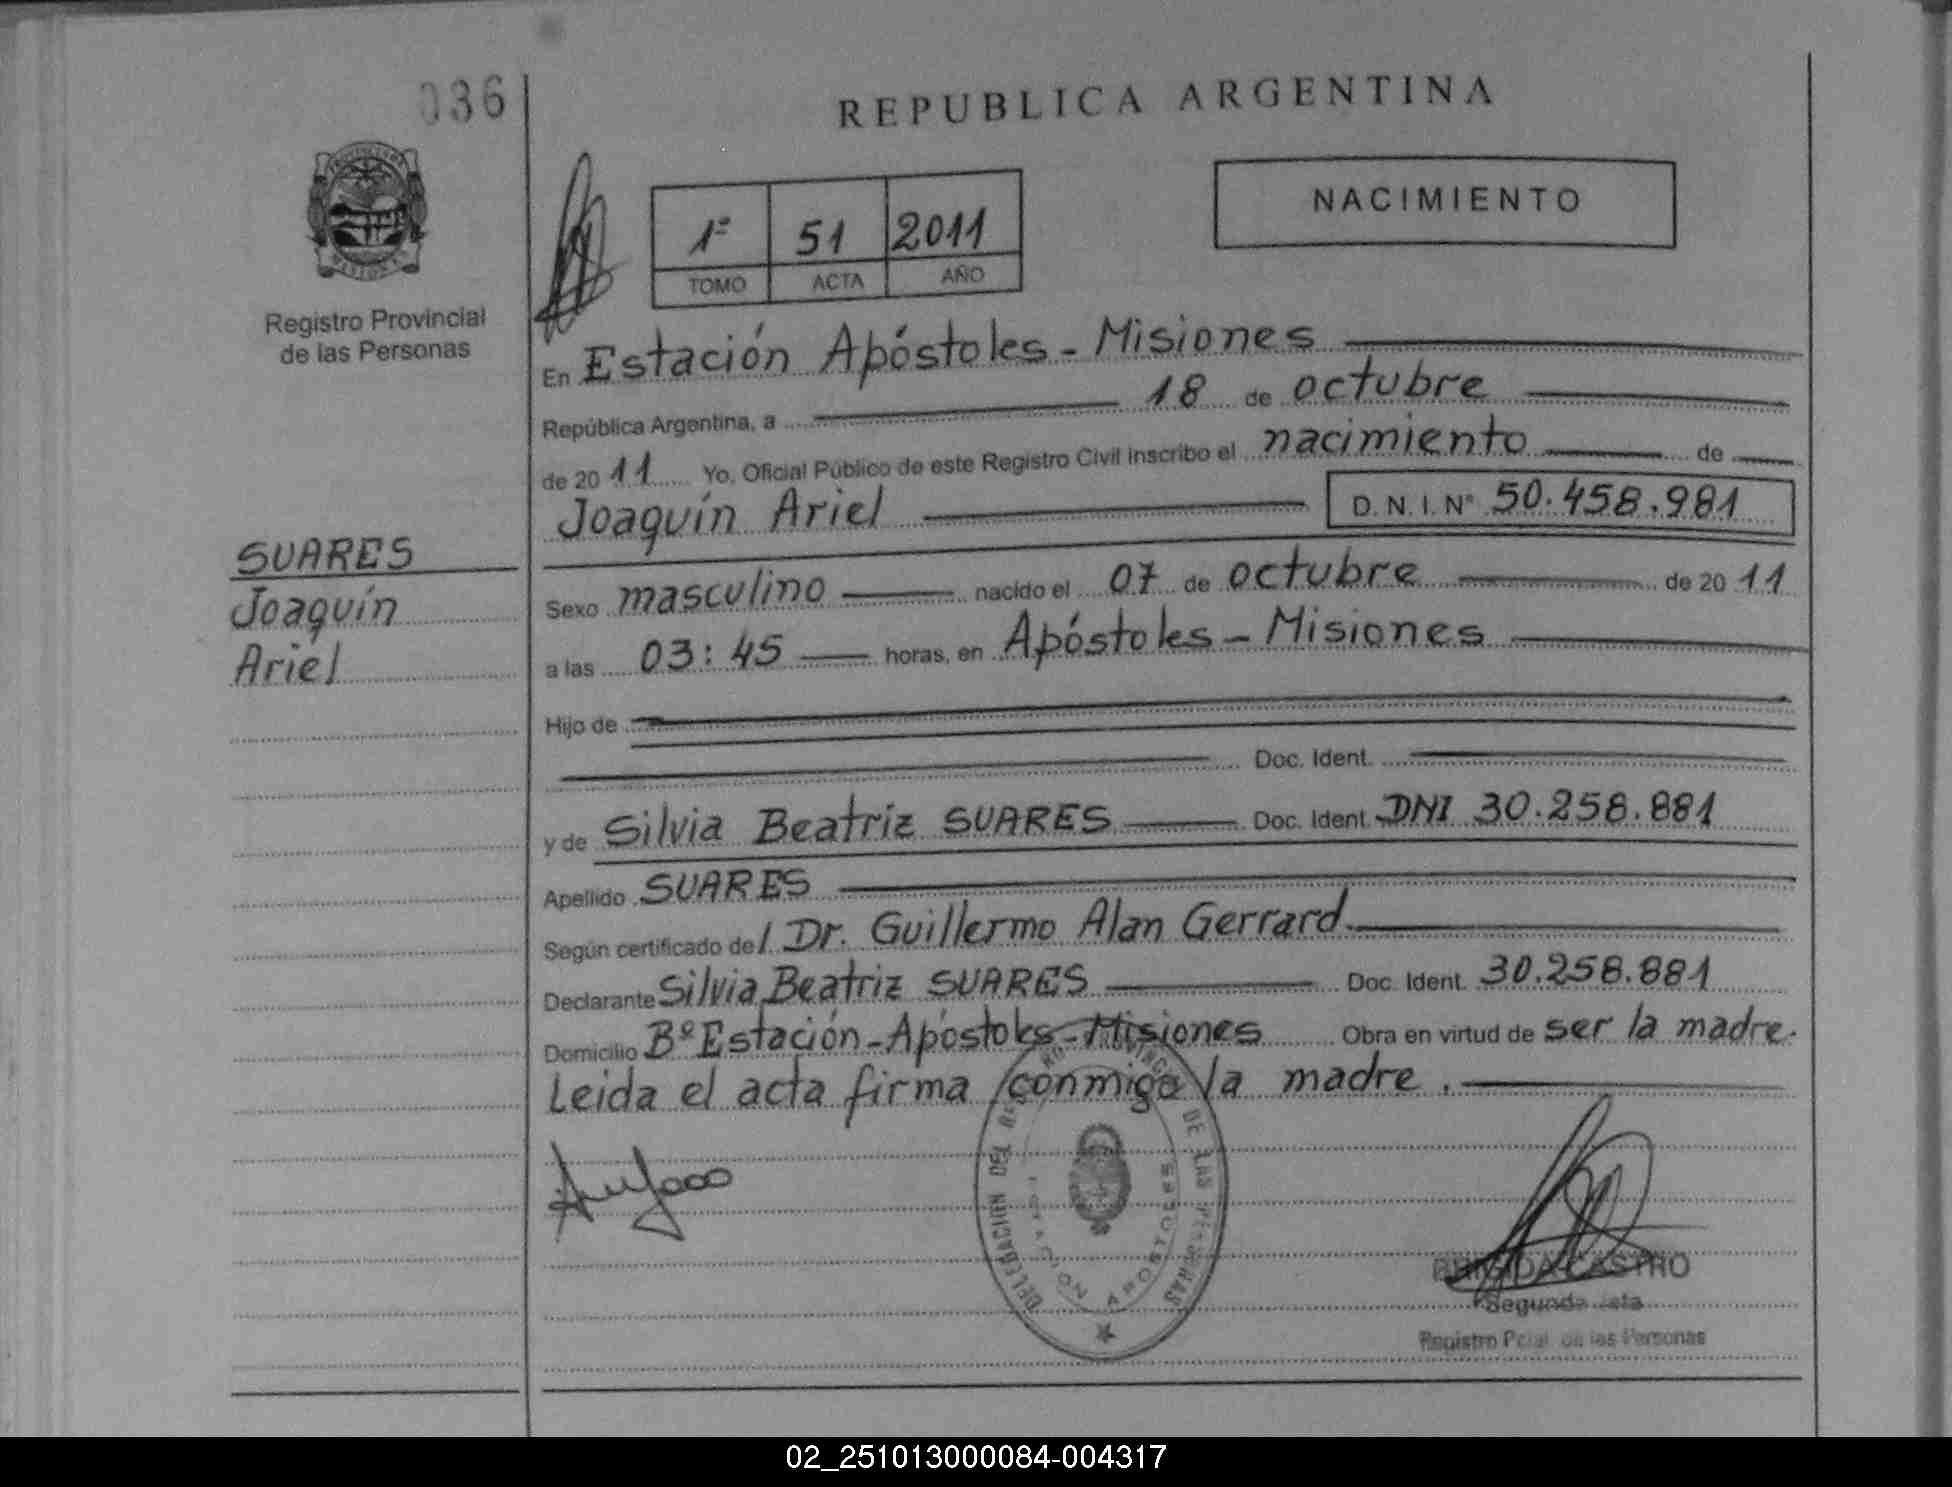 036
REPUBLICA ARGENTINA
PROVINCIA DE
MISIONES
Registro Provincial
de las Personas
1º 51 2011
TOMO ACTA AÑO
NACIMIENTO
En Estación Apóstoles - Misiones
República Argentina, a 18 de octubre
de 2011 Yo, Oficial Público de este Registro Civil inscribo el nacimiento de
Joaquín Ariel D. N. I. Nº 50.458.981
SUARES
Joaquín
Ariel
Sexo masculino nacido el 07 de octubre de 2011
a las 03:45 horas, en Apóstoles - Misiones
Hijo de
Doc. Ident.
y de Silvia Beatriz SUARES Doc. Ident. DNI 30.258.881
Apellido SUARES
Según certificado del Dr. Guillermo Alan Gerrard
Declarante Silvia Beatriz SUARES Doc. Ident. 30.258.881
Domicilio Bº Estación - Apóstoles - Misiones Obra en virtud de ser la madre.
Leida el acta firma conmigo la madre.
DELEGACION DEL DE LAS PERSONAS
ESTACION APOSTOLES
BRIGIDA CASTRO
Segunda Jefa
Registro Pcial. de las Personas
02_251013000084-004317